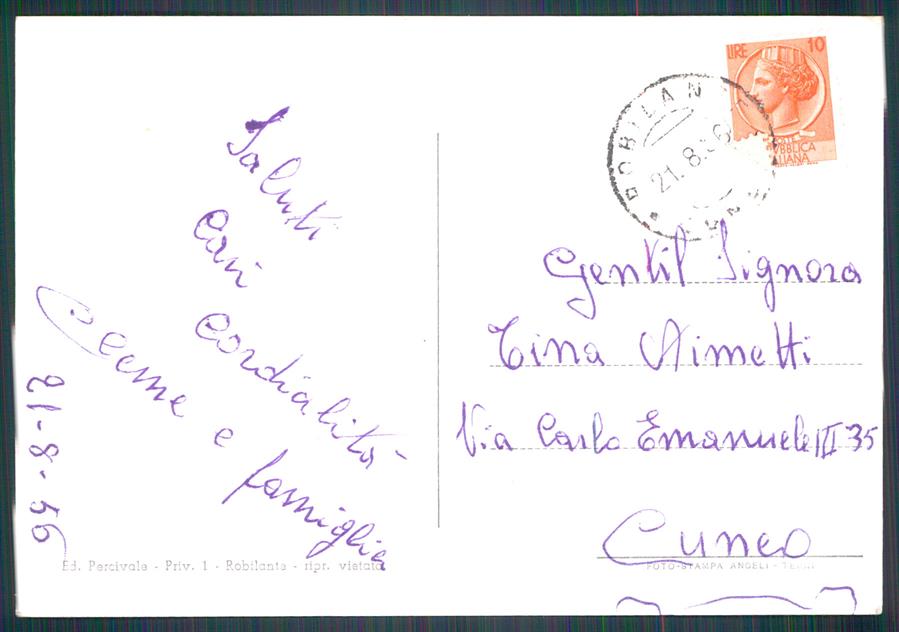 Saluti
cari
cordialità
e
famiglia
21-8-56
Ed. Percivale - Priv. 1 - Robilante - ripr. vietata
LIRE 10
ROBILANTE
21.8.56
Gentil Signora
Tina Aimetti
Via Carlo Emanuele III 35
Cuneo
FOTO-STAMPA ANGELI - TERNI